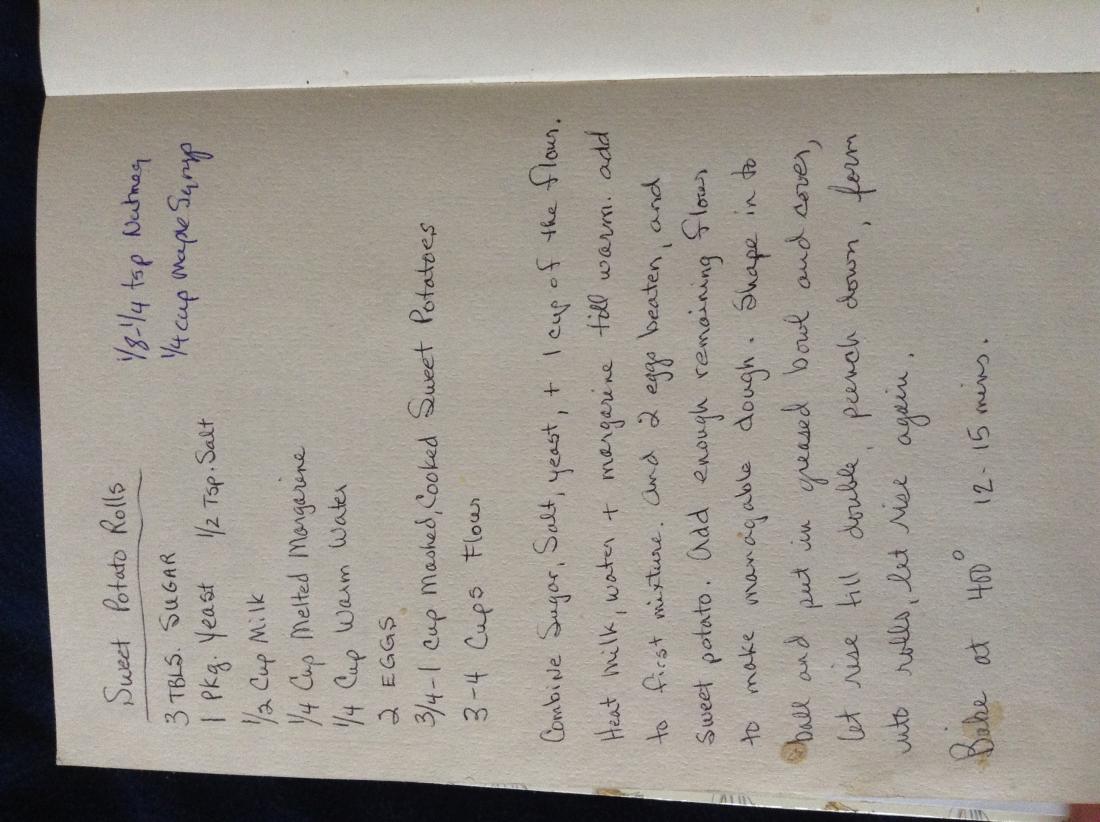 Sweet Potato Rolls
1/8-1/4 tsp Nutmeg
3 TBLS. SUGAR
1/4 cup maple Syrup
1 Pkg. Yeast 1/2 Tsp. Salt
1/2 Cup Milk
1/4 Cup Melted Margarine
1/4 Cup Warm Water
2 EGGS
3/4-1 Cup Mashed, Cooked Sweet Potatoes
3-4 Cups Flour
Combine Sugar, Salt, yeast, + 1 cup of the flour.
Heat milk, water + margarine till warm. add
to first mixture. and 2 eggs beaten, and
sweet potato. Add enough remaining flour
to make managable dough. Shape in to
ball and put in greased bowl and cover,
let rise till double, punch down, form
into rolls, let rise again.
Bake at 400° 12-15 mins.